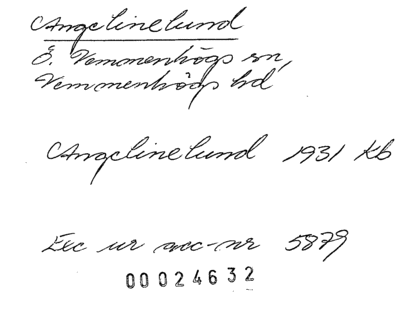 Angelinelund
Ö. Vemmenhögs sn,
Vemmenhögs hd
Angelinelund 1931 Kb
Exc ur acc-nr 5879
00024632